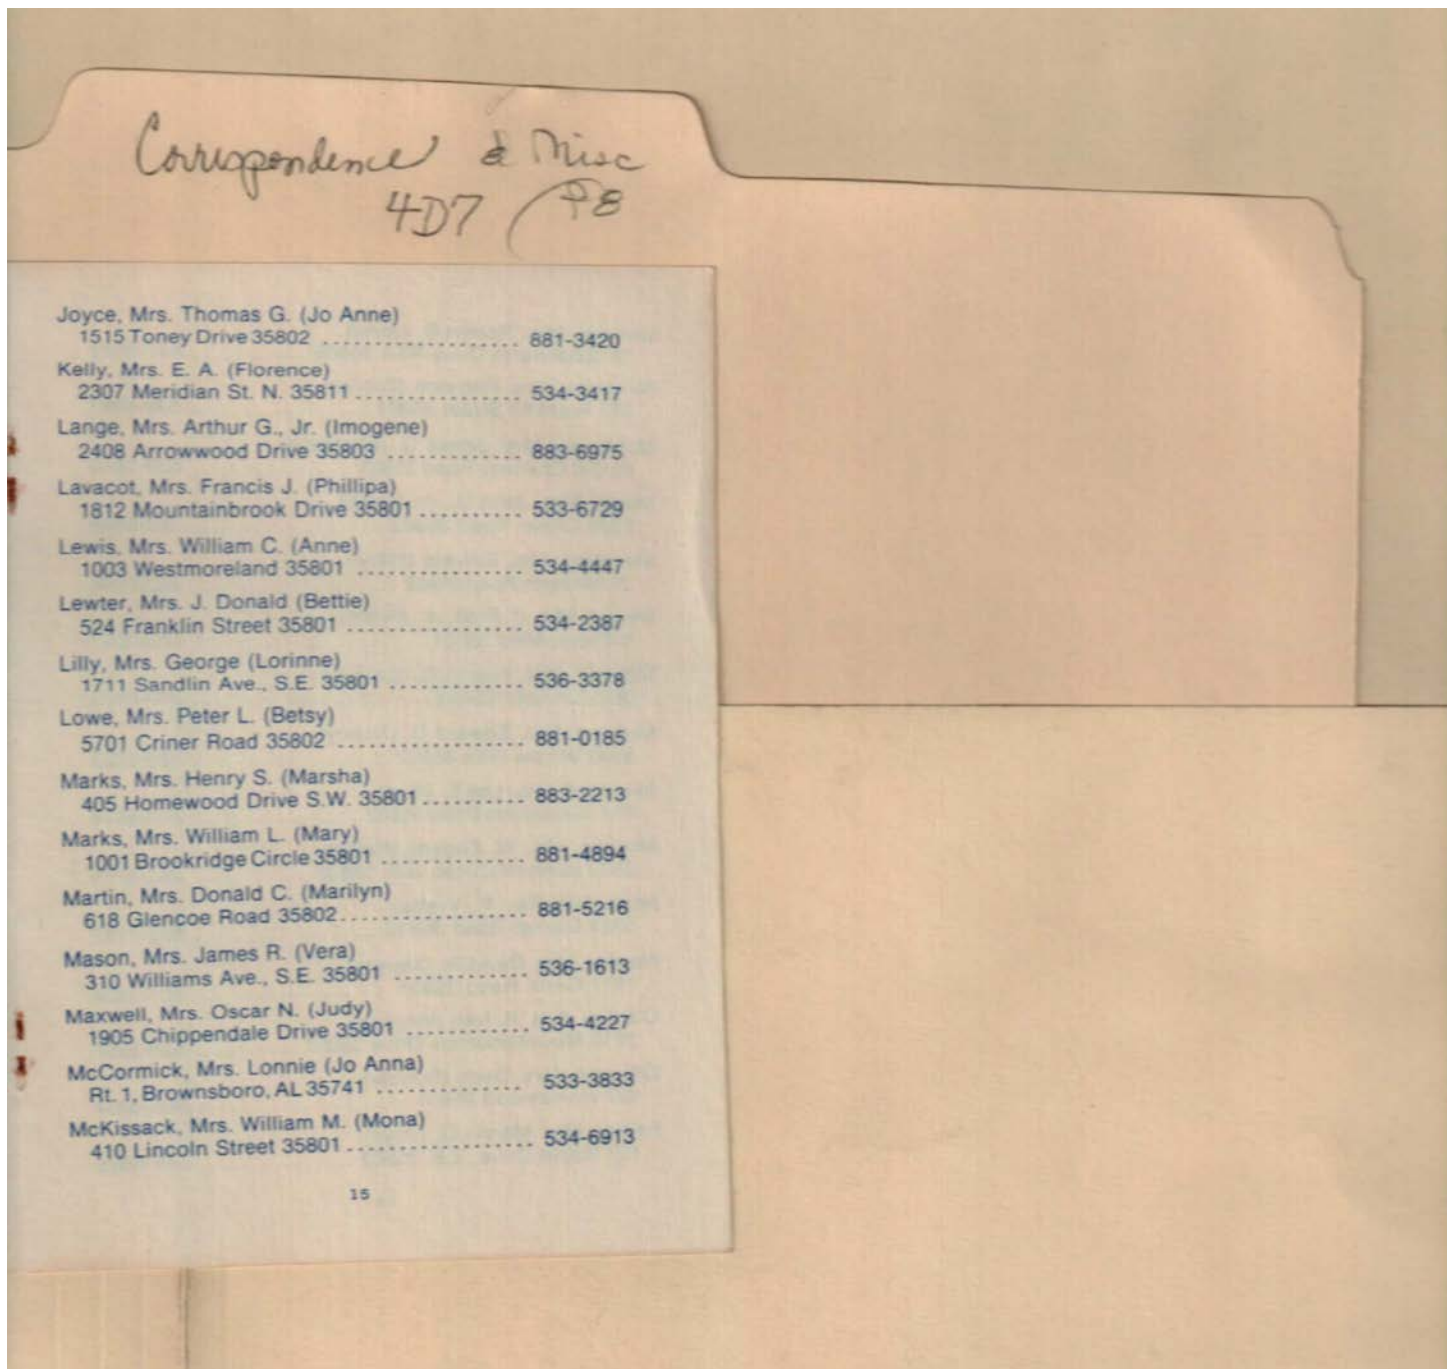 Correspondence & Misc
4D7 (P8
Joyce, Mrs. Thomas G. (Jo Anne)
1515 Toney Drive 35802 ................... 881-3420
Kelly, Mrs. E. A. (Florence)
2307 Meridian St. N. 35811 ................ 534-3417
Lange, Mrs. Arthur G., Jr. (Imogene)
2408 Arrowwood Drive 35803 ............. 883-6975
Lavacot, Mrs. Francis J. (Phillipa)
1812 Mountainbrook Drive 35801 .......... 533-6729
Lewis, Mrs. William C. (Anne)
1003 Westmoreland 35801 ................ 534-4447
Lewter, Mrs. J. Donald (Bettie)
524 Franklin Street 35801 ................. 534-2387
Lilly, Mrs. George (Lorinne)
1711 Sandlin Ave., S.E. 35801 ............. 536-3378
Lowe, Mrs. Peter L. (Betsy)
5701 Criner Road 35802 .................. 881-0185
Marks, Mrs. Henry S. (Marsha)
405 Homewood Drive S.W. 35801 .......... 883-2213
Marks, Mrs. William L. (Mary)
1001 Brookridge Circle 35801 .............. 881-4894
Martin, Mrs. Donald C. (Marilyn)
618 Glencoe Road 35802 .................. 881-5216
Mason, Mrs. James R. (Vera)
310 Williams Ave., S.E. 35801 ............. 536-1613
Maxwell, Mrs. Oscar N. (Judy)
1905 Chippendale Drive 35801 ............ 534-4227
McCormick, Mrs. Lonnie (Jo Anna)
Rt. 1, Brownsboro, AL 35741 .............. 533-3833
McKissack, Mrs. William M. (Mona)
410 Lincoln Street 35801 .................. 534-6913
15